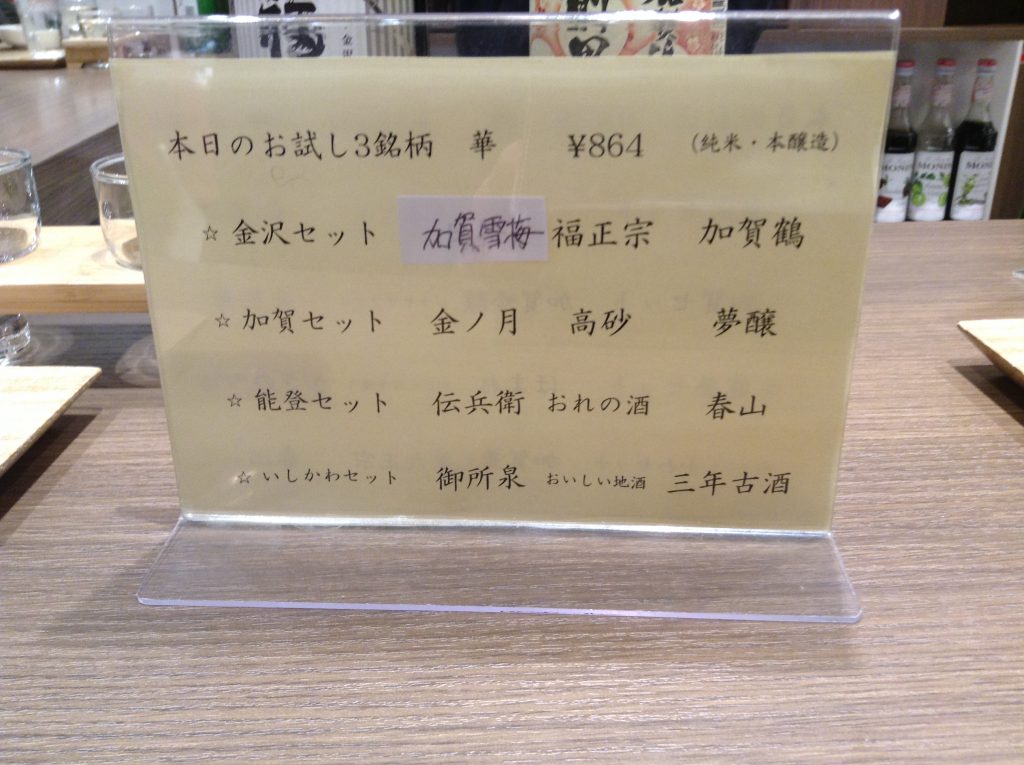 本日のお試し3銘柄 華 ¥864 (純米・本醸造)
☆ 金沢セット 加賀雪梅 福正宗 加賀鶴
☆ 加賀セット 金ノ月 高砂 夢醸
☆ 能登セット 伝兵衛 おれの酒 春山
☆ いしかわセット 御所泉 おいしい地酒 三年古酒
MONIN
MONIN
MONIN